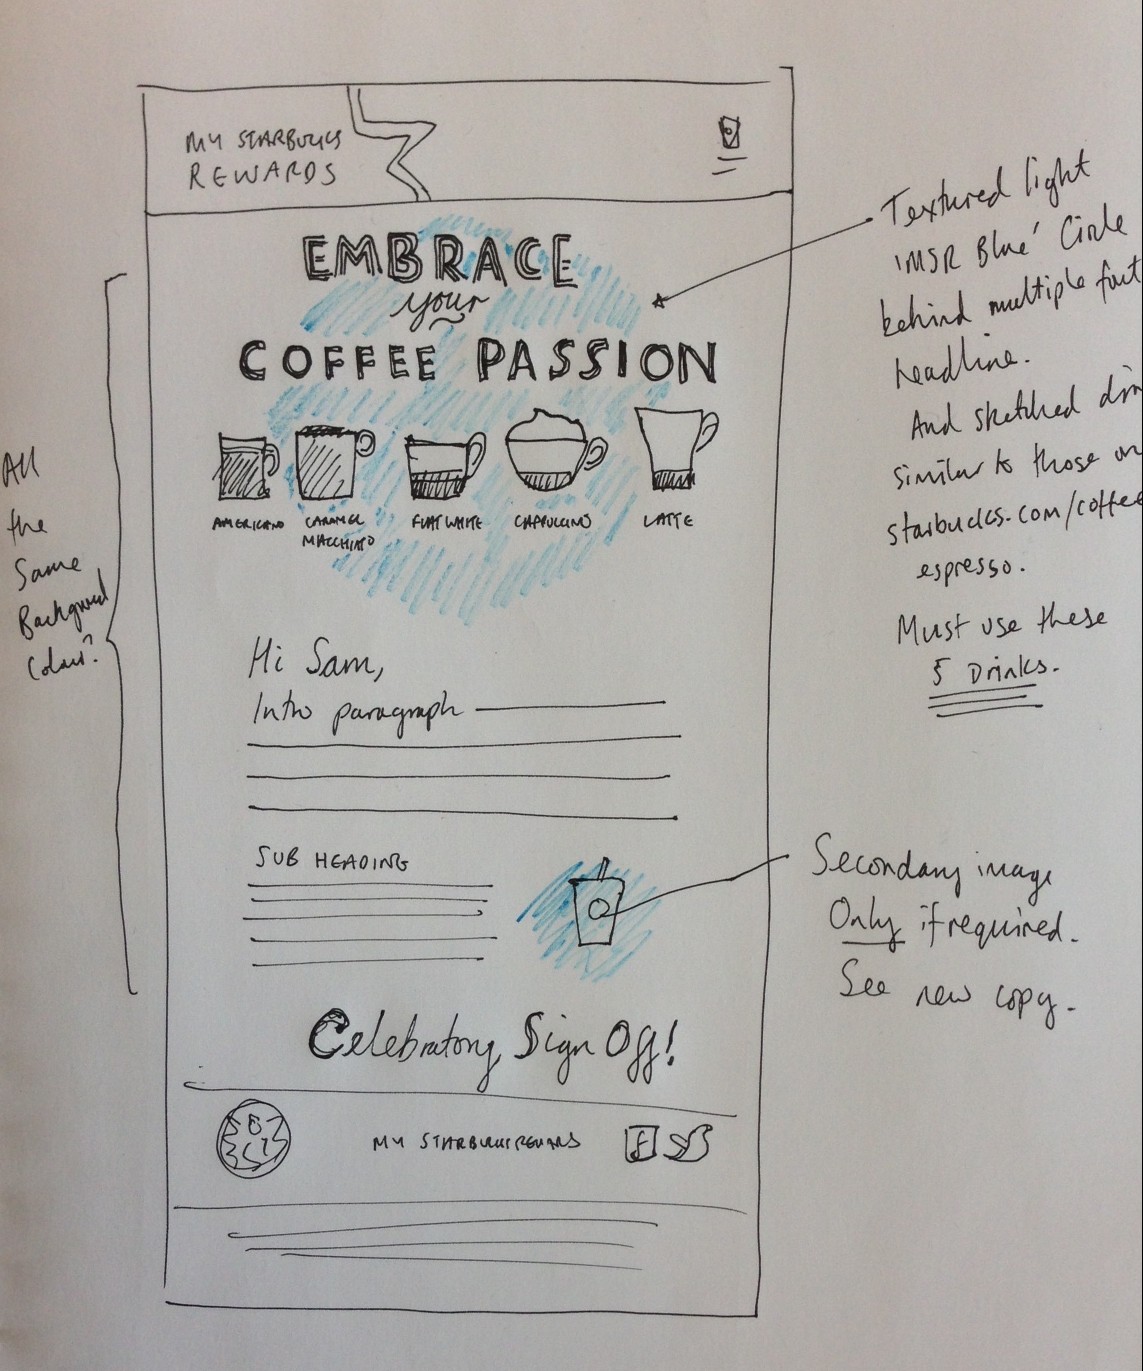 MY STARBUCKS
REWARDS
EMBRACE
your
COFFEE PASSION
AMERICANO
CARAMEL
MACCHIATO
FLAT WHITE
CAPPUCCINO
LATTE
Hi Sam,
Intro paragraph
SUB HEADING
Celebratory Sign Off!
MY STARBUCKS REWARDS
f
All
the
Same
Background
Colour?
Textured light
'MSR Blue' Circle
behind multiple font
headline.
And sketched
similar to those on
starbucks.com/coffee
espresso.
Must use these
5 Drinks.
Secondary image
Only if required.
See new copy.